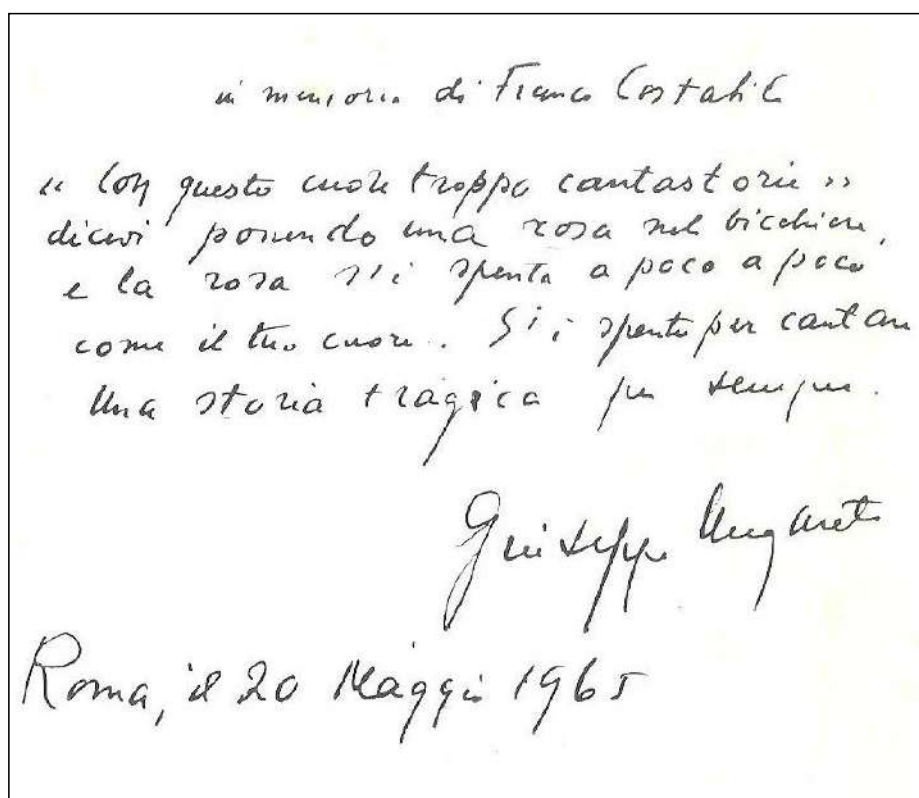 in memoria di Franco Costabile
« Con questo cuore troppo cantastorie »
dicevi ponendo una rosa nel bicchiere,
e la rosa s'è spenta a poco a poco
come il tuo cuore. Si è spento per cantare
una storia tragica per sempre.
Giuseppe Ungaretti
Roma, il 20 Maggio 1965